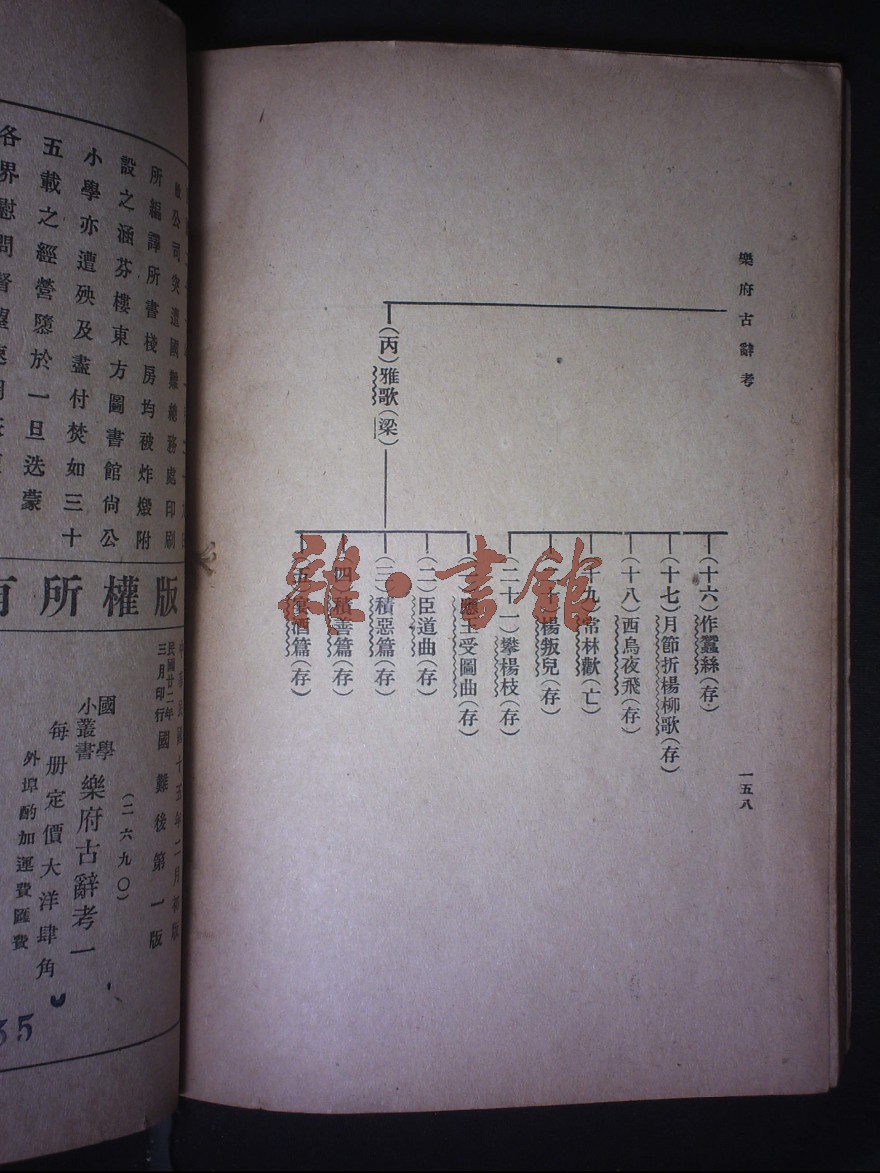 樂府古辭考
一五八
(十六)作蠶絲(存)
(十七)月節折楊柳歌(存)
(十八)西烏夜飛(存)
(十九)常林歡(亡)
楊叛兒(存)
(二十一)攀楊枝(存)
(丙)雅歌(梁)
應王受圖曲(存)
(二)臣道曲(存)
(三)積惡篇(存)
(四)積善篇(存)
酒篇(存)
公司突遭國難總務處印刷
所編譯所書棧房均被炸燬附
設之涵芬樓東方圖書館尙公
小學亦遭殃及盡付焚如三十
五載之經營隳於一旦迭蒙
各界慰問督望速
版權所有
民國廿二年三月印行
國難後第一版
(二六九〇)
國學小叢書
樂府古辭考一
每册定價大洋肆角
外埠酌加運費匯費
35
雜·書館